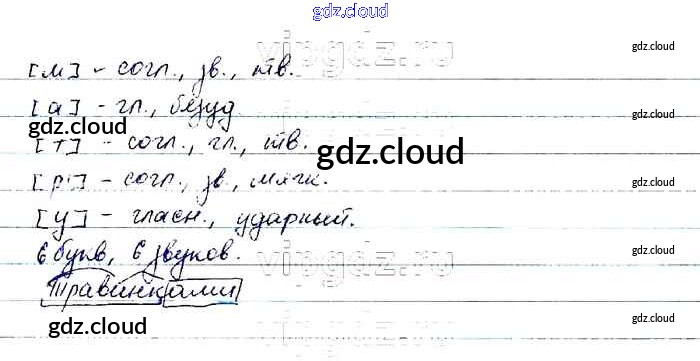 gdz.cloud
vipgdz.ru
gdz.cloud
[м] - согл., зв., тв.
gdz.cloud
[а] - гл., безуд.
gdz.cloud
[т] - согл., гл., тв.
gdz.cloud
gdz.cloud
[р'] - согл., зв., мягк.
gdz.cloud
[у] - гласн., ударный.
6 букв, 6 звуков.
vipgdz.ru
gdz.cloud
Травинками
gdz.cloud
gdz.cloud
gdz.cloud